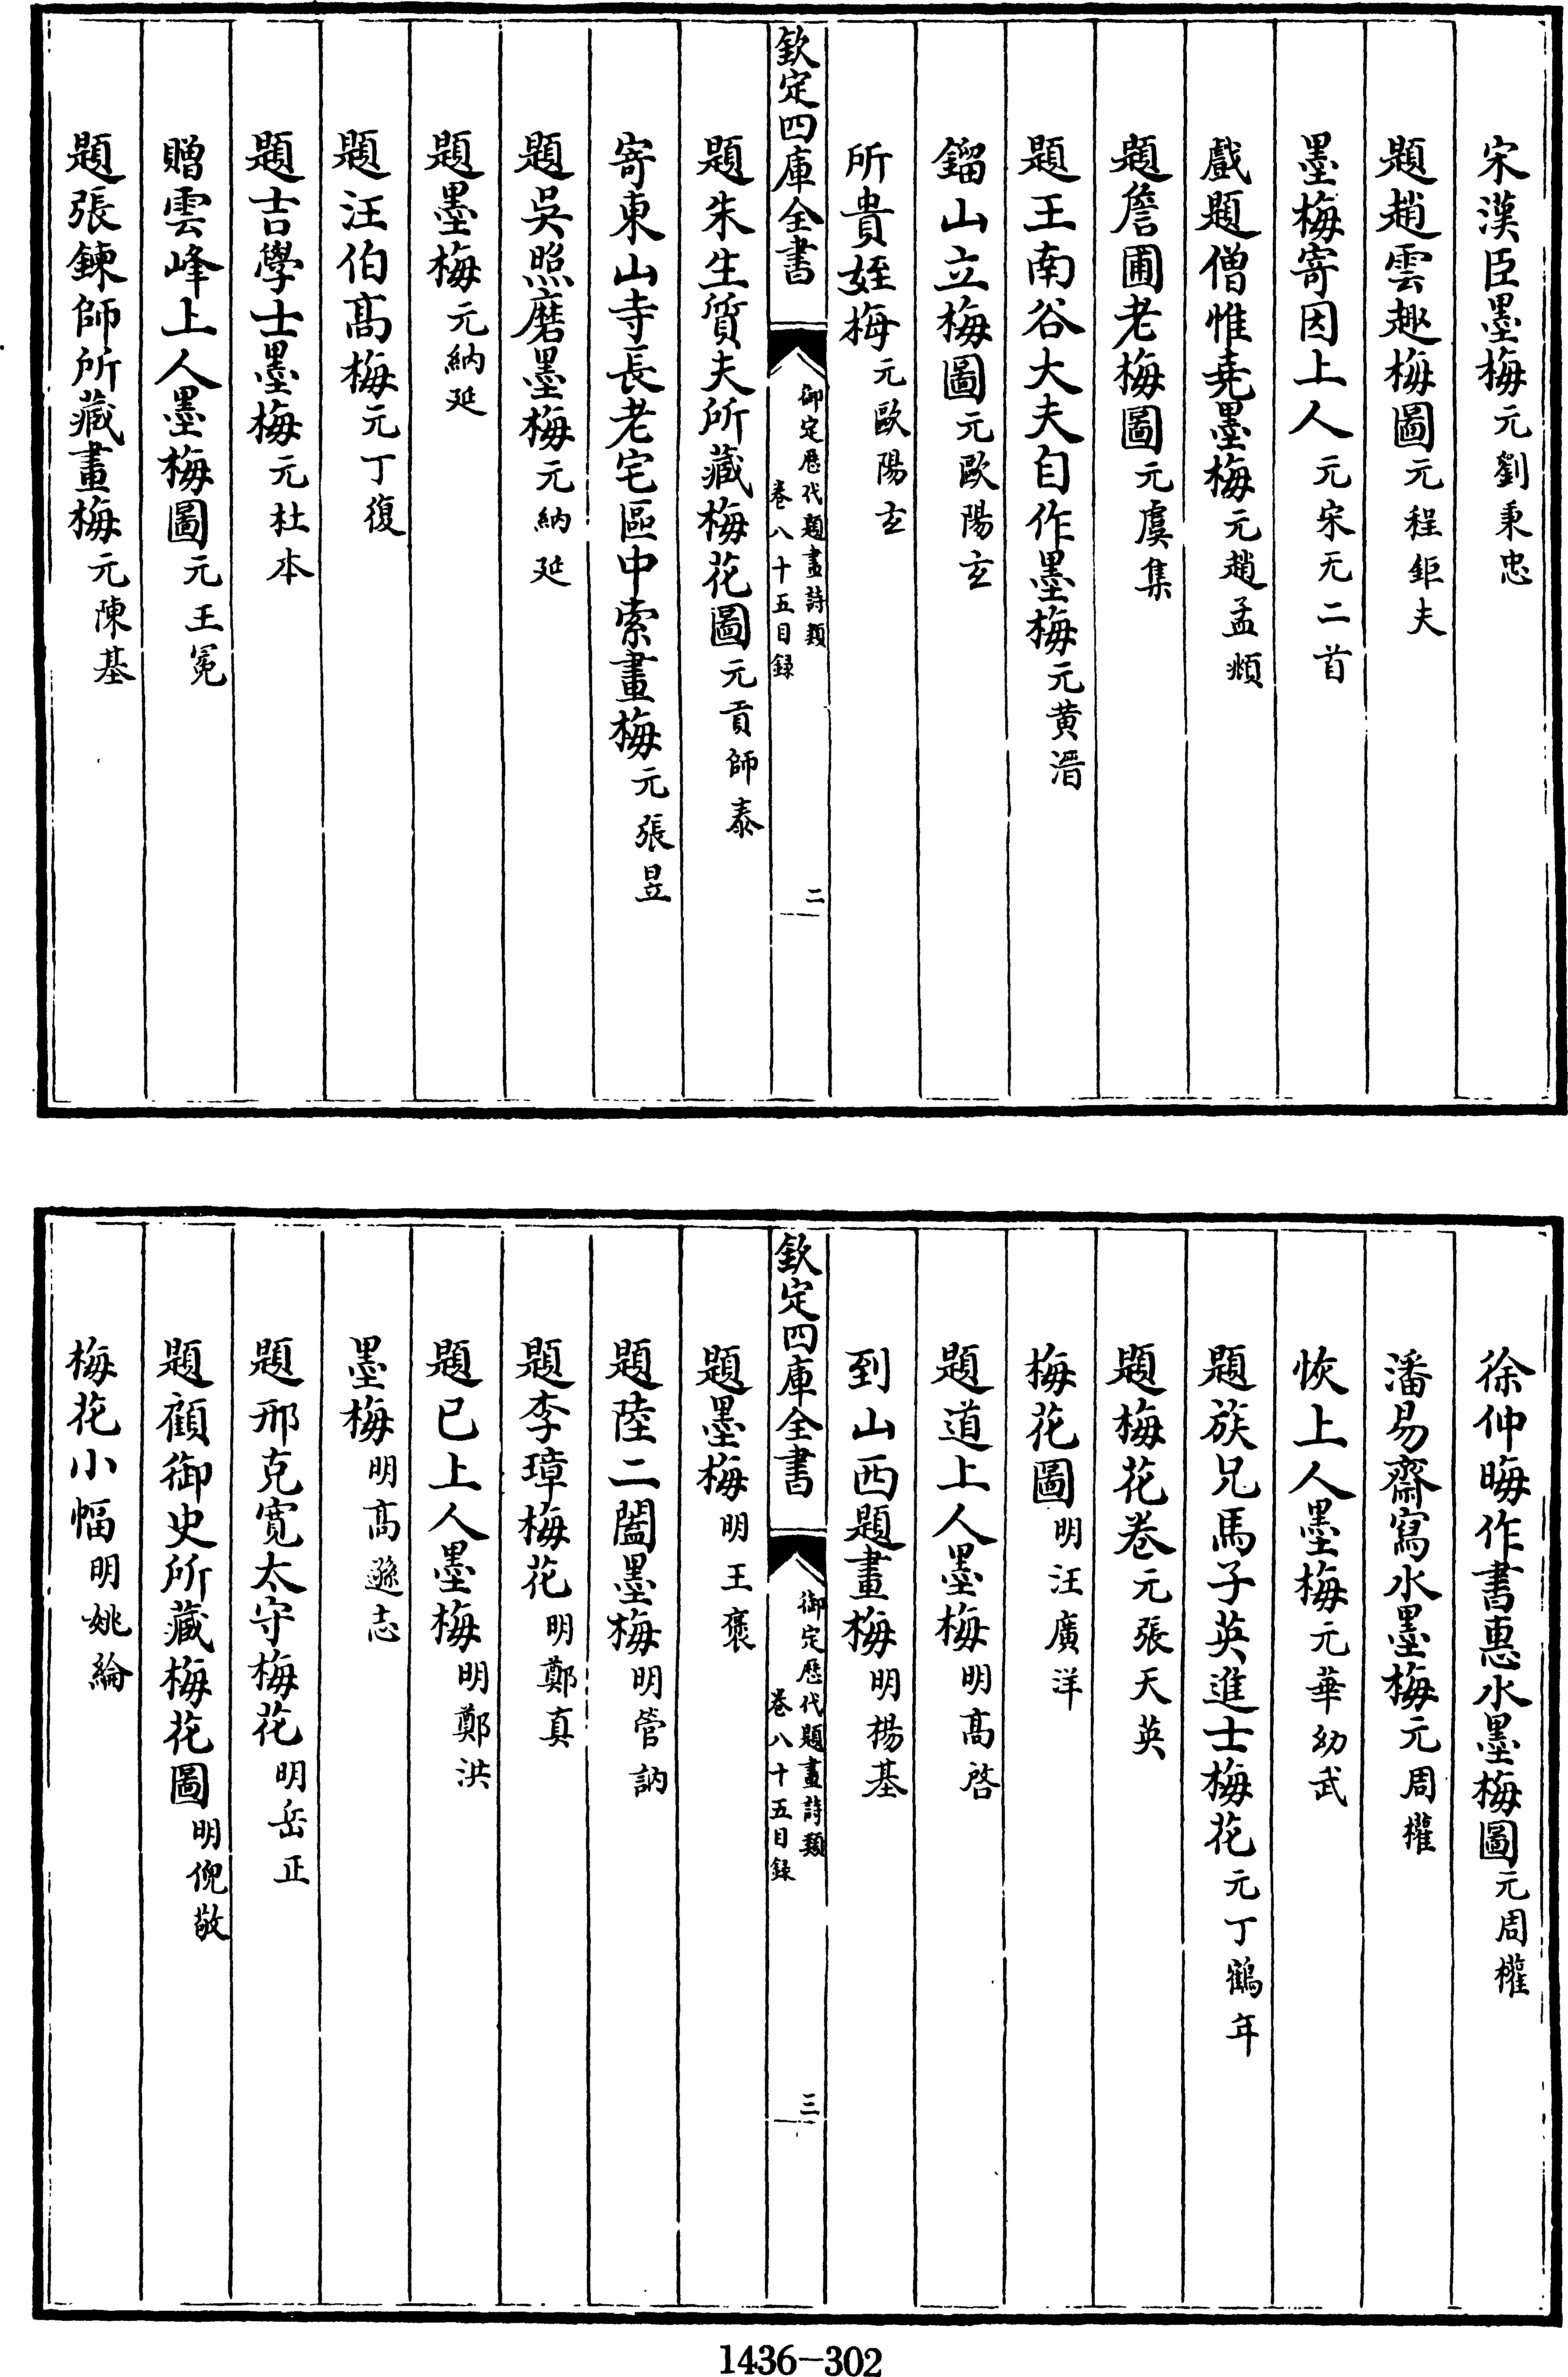 宋漢臣墨梅元劉秉忠
題趙雲趣梅圖元程鉅夫
墨梅寄因上人元宋无二首
戲題僧惟堯墨梅元趙孟頫
題詹圃老梅圖元虞集
題王南谷大夫自作墨梅元黄溍
鎦山立梅圖元歐陽玄
所貴姪梅元歐陽玄
欽定四庫全書
御定歷代題畫詩類
卷八十五目録
二
題朱生質夫所藏梅花圖元貢師泰
寄東山寺長老宅區中索畫梅元張昱
題吳照磨墨梅元納延
題墨梅元納延
題汪伯髙梅元丁復
題吉學士墨梅元杜本
贈雲峰上人墨梅圖元王冕
題張鍊師所藏畫梅元陳基
徐仲晦作書惠水墨梅圖元周權
潘易齋寫水墨梅元周權
恢上人墨梅元華幼武
題族兄馬子英進士梅花元丁鶴年
題梅花卷元張天英
梅花圖明汪廣洋
題道上人墨梅明髙啓
到山西題畫梅明楊基
欽定四庫全書
御定歷代題畫詩類
卷八十五目録
三
題墨梅明王褒
題陸二闔墨梅明管訥
題李璋梅花明鄭真
題已上人墨梅明鄭洪
墨梅明髙遜志
題邢克寛太守梅花明岳正
題顧御史所藏梅花圖明倪敬
梅花小幅明姚綸
1436-302